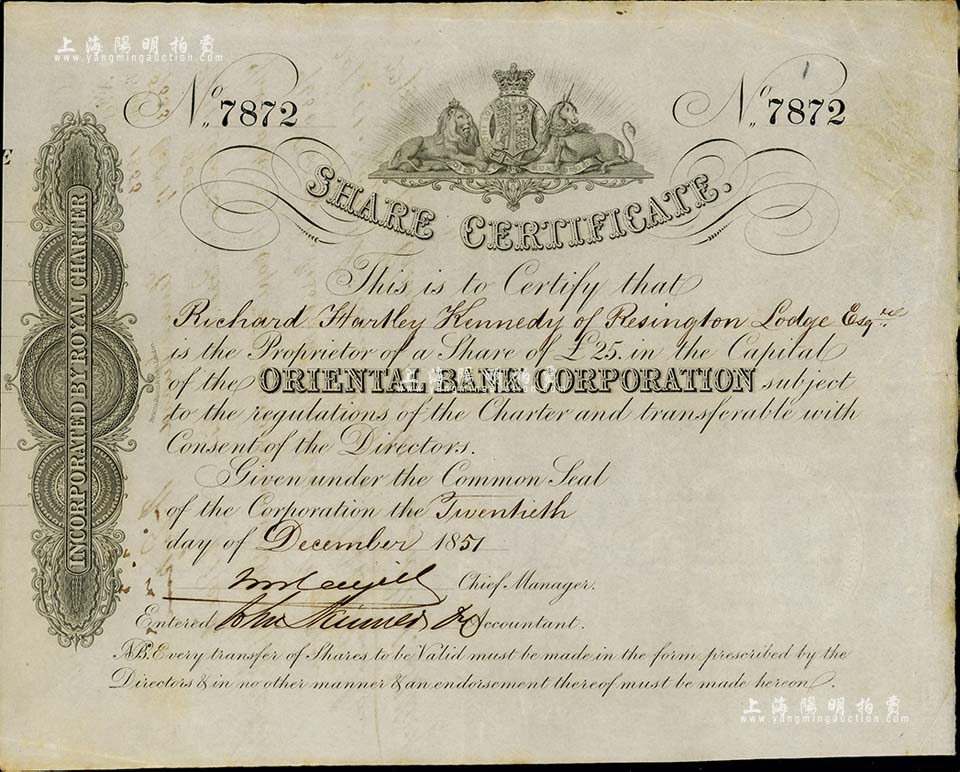 上海陽明拍賣
www.yangmingauction.com
No 7872
No 7872
SHARE CERTIFICATE.
INCORPORATED BY ROYAL CHARTER
This is to Certify that
Richard Hartley Kennedy of Resington Lodge Esqre
is the Proprietor of a Share of £25. in the Capital
of the ORIENTAL BANK CORPORATION subject
上海陽明拍賣
to the regulations of the Charter and transferable with
Consent of the Directors.
Given under the Common Seal
of the Corporation the Twentieth
day of December 1851
Chief Manager.
Entered Accountant.
NB. Every transfer of Shares to be Valid must be made in the form prescribed by the
Directors & in no other manner & an endorsement thereof must be made hereon.
上海陽明拍賣
www.yangmingauction.com